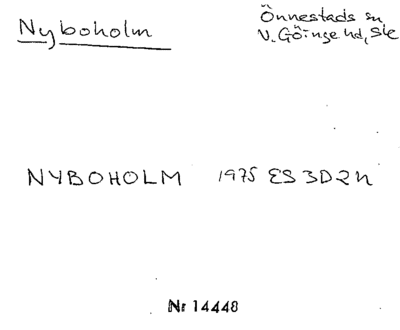 Nyboholm
Önnestads sn
V. Göinge hd, Skе
NYBOHOLM 1975 ES 3D2h
Nr 14448